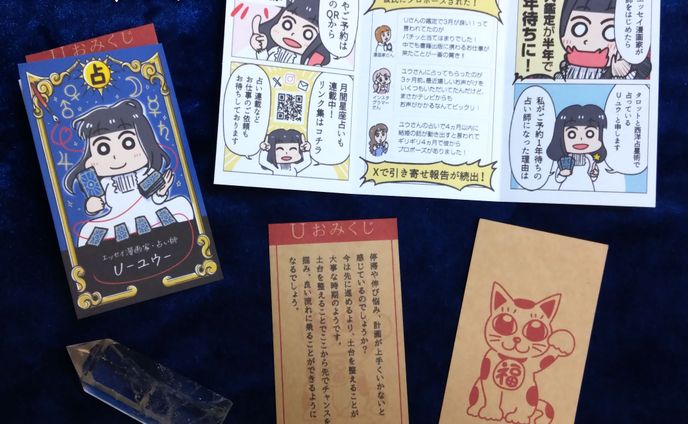 Uおみくじ
占
エッセイ漫画家・占い師
U-ユウ-
ご予約は
QRから
月間星座占いも
連載中！
リンク集はコチラ
占い連載など
お仕事のご依頼も
お待ちしております
Uさんの鑑定で3月が良い！って
言われてたのが
バチッと当てはまりでした！
中でも書籍出版に携わるお仕事が
来たことが一番の驚き！
ユウさんに占ってもらったのが
3ヶ月前。最近嬉しいお声がけを
いくつもいただいてたんだけど、
まさかテレビからも
お声がかかるなんてビックリ！
インスタ
グラマー
さん
Uさんの占いで4ヶ月以内に
結婚の話が動き出すと言われて
ギリギリ4ヵ月で彼から
プロポーズがありました！
Xで引き寄せ報告が続出！
エッセイ漫画家が
占い師をはじめたら
鑑定が半年で
1年待ちに！
タロットと西洋占星術で
占っている
U-ユウ-と申します
私がご予約1年待ちの
占い師になった理由は
Uおみくじ
停滞や伸び悩み、計画が上手くいかないと
感じているのでしょうか？
今は先に進めるより、土台を整えることが
大事な時期のようです。
土台を整えることでここから先でチャンスを
掴み、良い流れに乗ることができるように
なるでしょう。
福